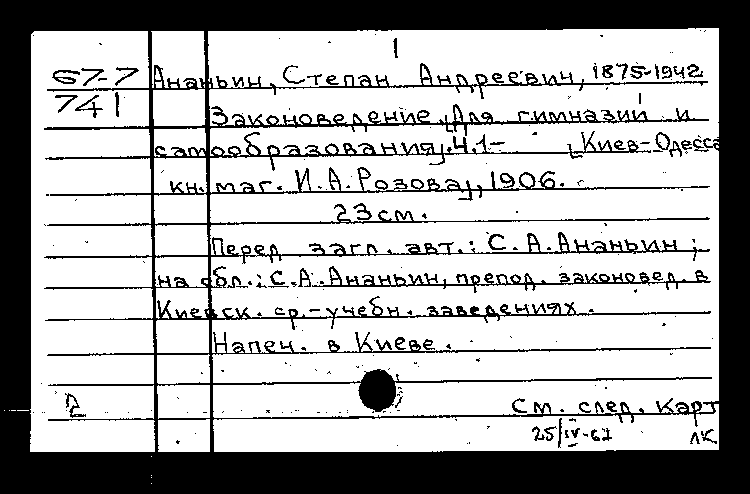 1
67-7 Ананьин, Степан Андреевич, 1875-1942
741 Законоведение [Для гимназий и
самообразования]. Ч.1- [Киев-Одесса
кн. маг. И.А.Розова], 1906.
23 см.
Перед загл. авт.: С.А.Ананьин;
на обл.: С.А.Ананьин, препод. законовед. в
Киевск. ср.-учебн. заведениях.
Напеч. в Киеве.
2 См. след. карт
25/IV-67 ЛК